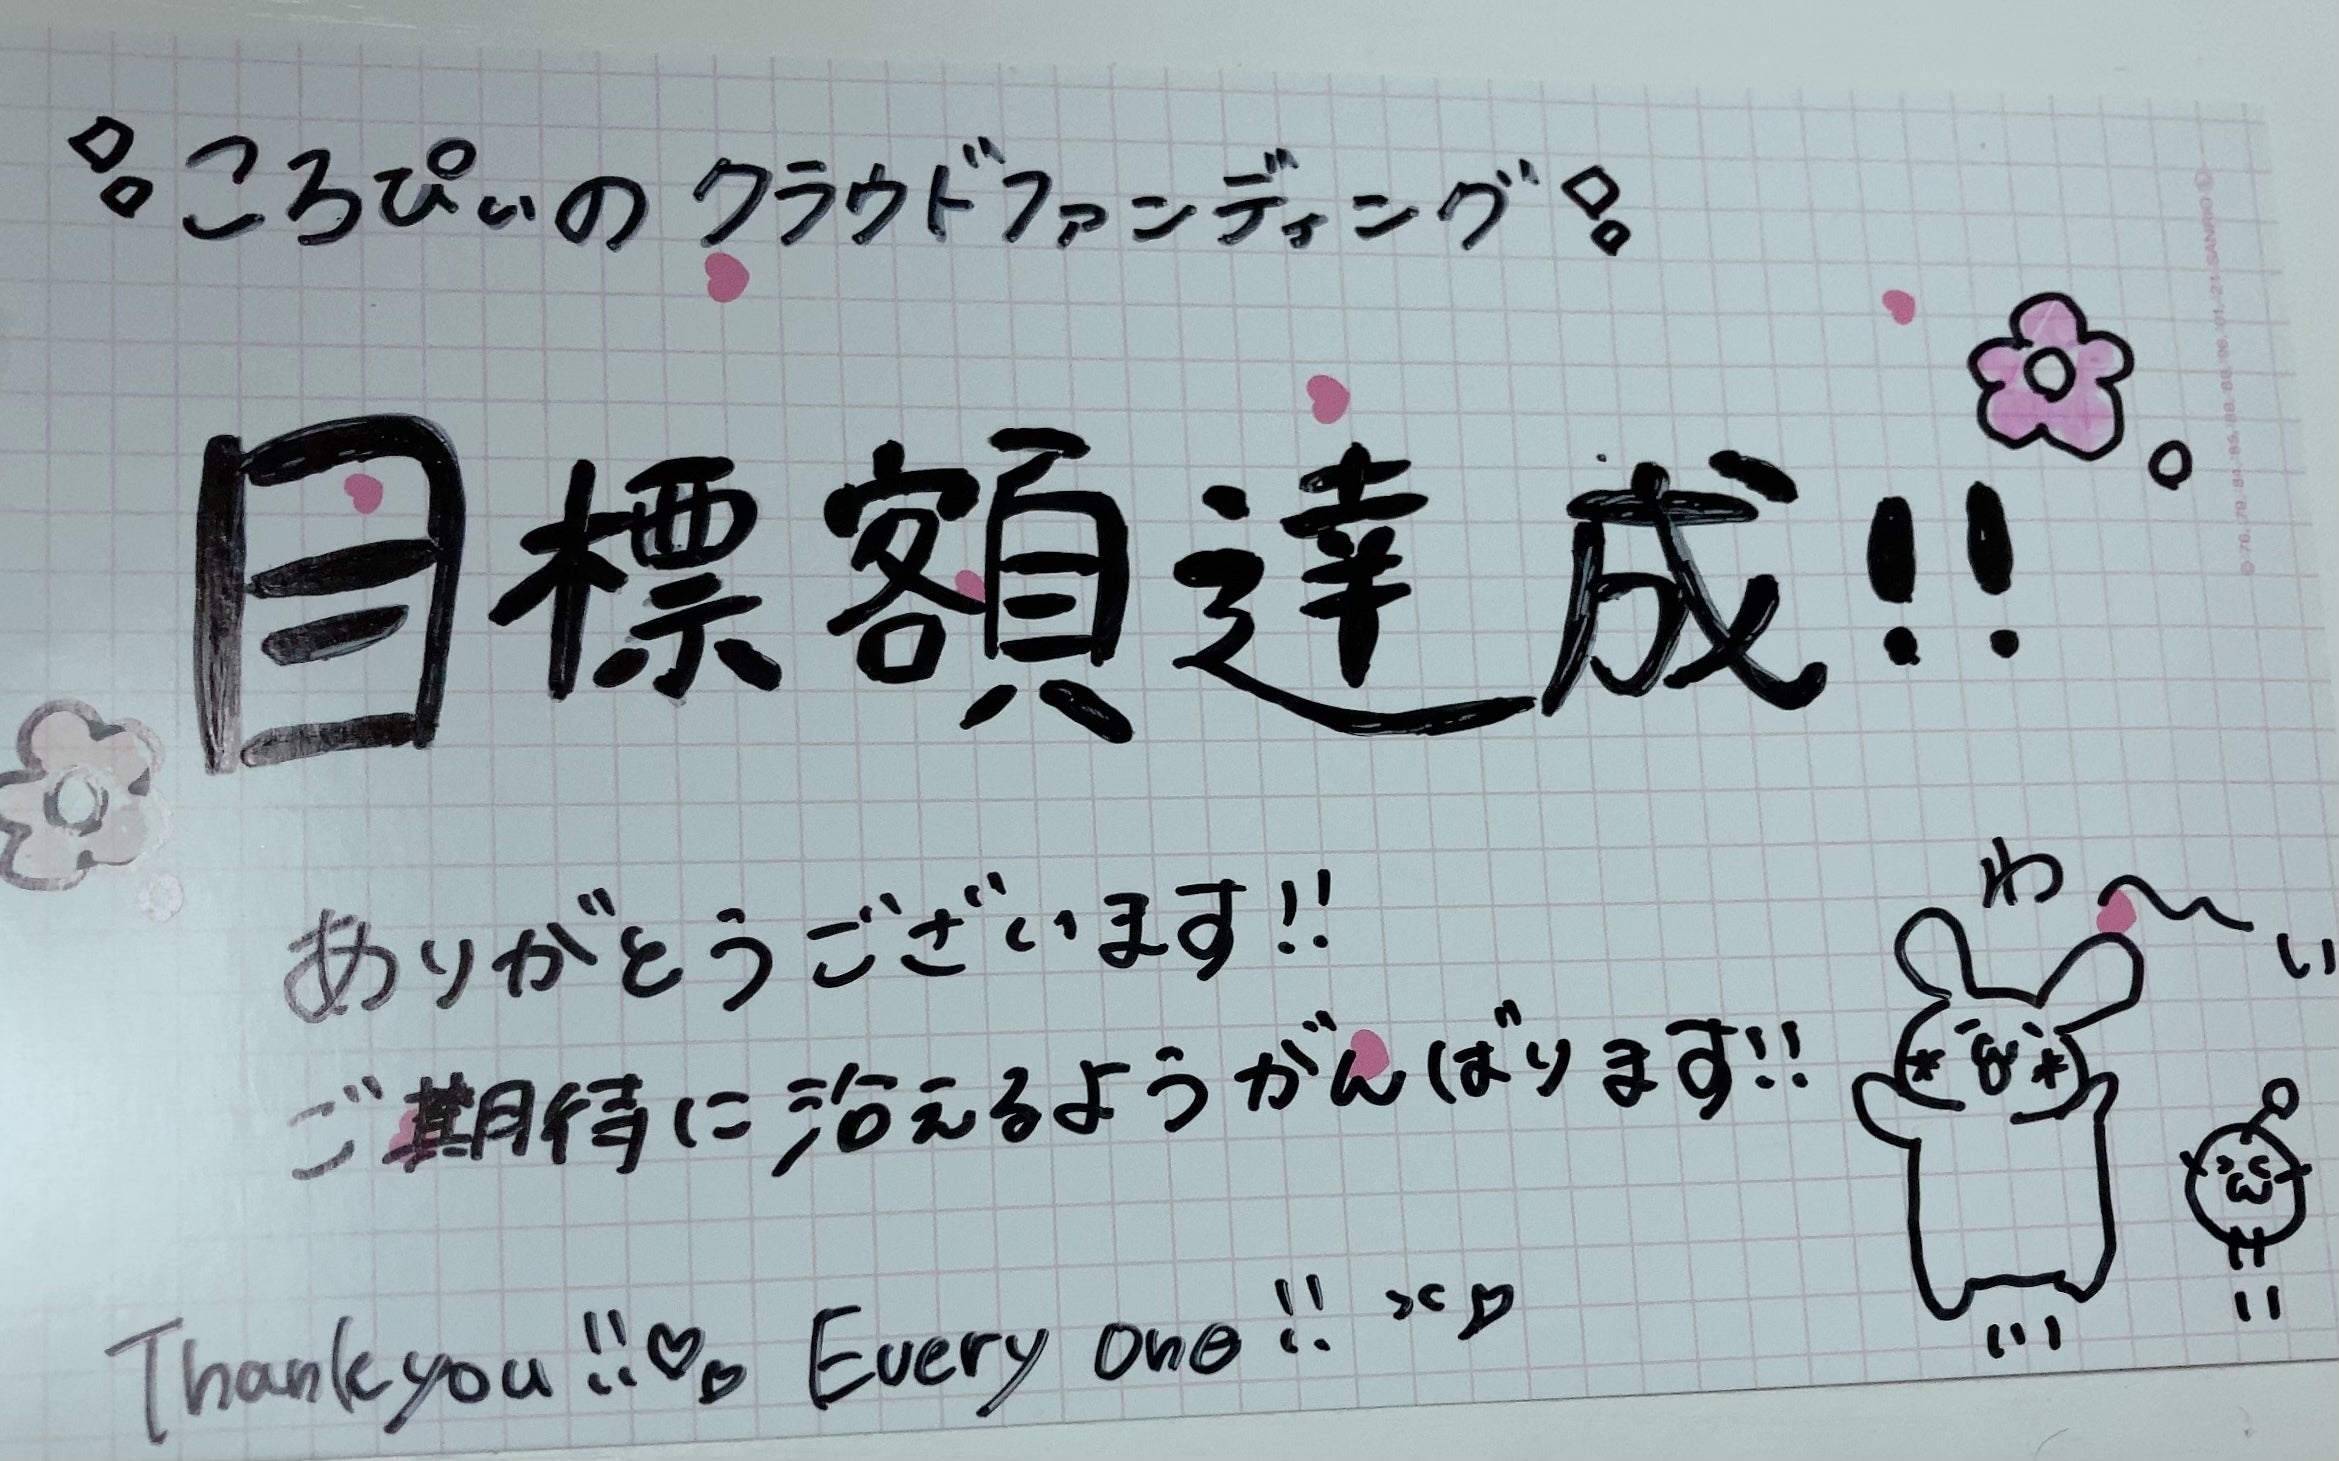 ころぴぃのクラウドファンディング
目標額達成!!
ありがとうございます!!
わ〜い
ご期待に沿えるようがんばります!!
Thank you!!♡♡ Every one!! ><♡